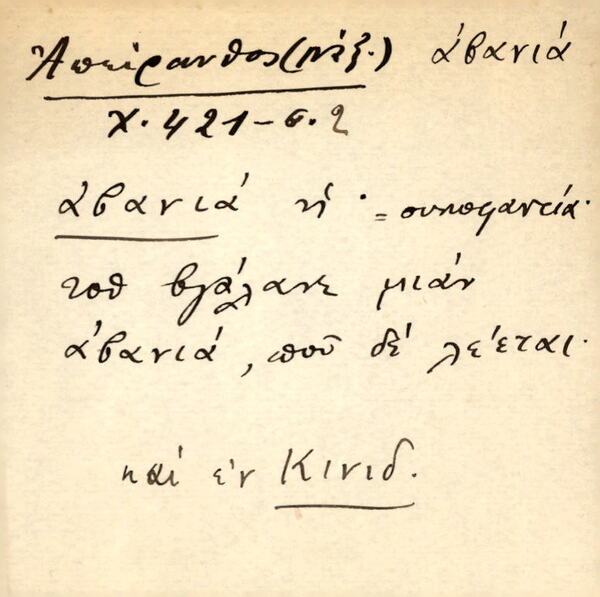 Ἀπείρανθος (Νάξ.) ἀβανιά
χ. 421 - σ. 2
ἀβανιά ἡ · = συκοφαντία·
τοῦ βγάλανε μιὰν
ἀβανιά, ποῦ δὲ λέεται·
καὶ ἐν Κινιδ.